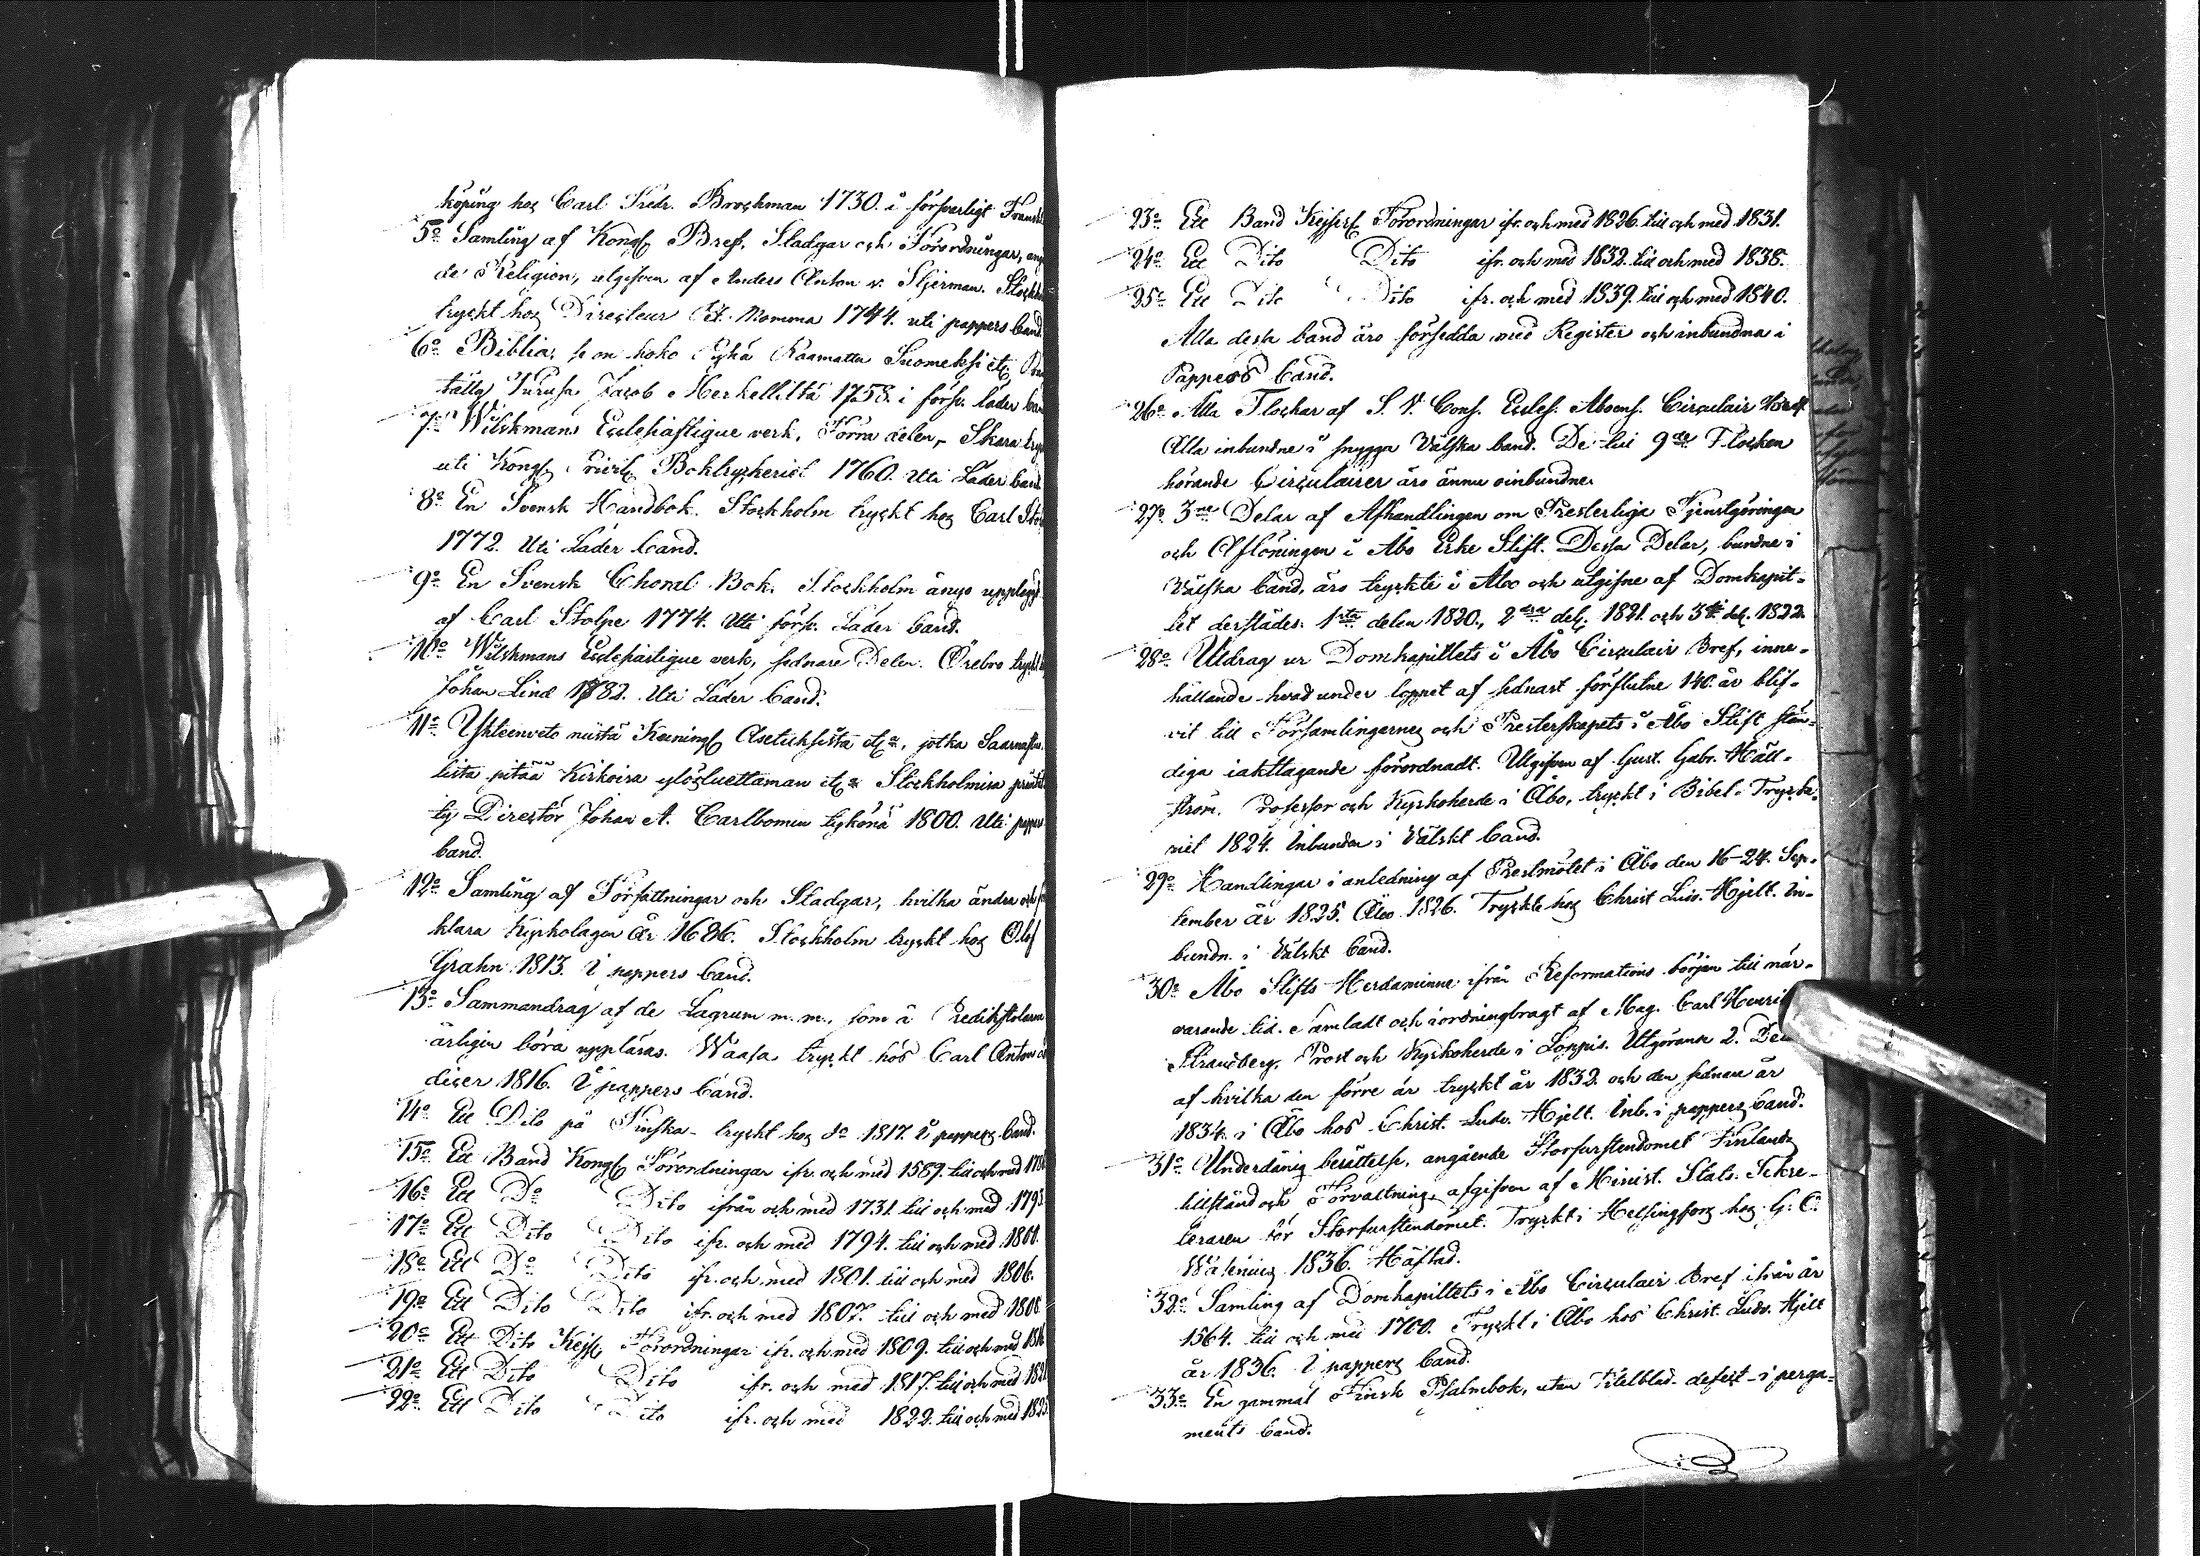 köping hos Carl Fredr. Brockman 1730. i försvarligt Fransk
5o Samling af Kongl Bref, Stadgar och Förordningar, ang
de Religion, utgifven af Anders Anton v. Stjerman. Stockh
tryckt hos Directeur Pet. Momma 1744. uti pappers band
6o Biblia, se on koko Pyhä Raamattu Suomeksi etc
tätty Turusa Jacob Merkelliltä 1758. i försv. läder ban
7o Wilskmans Ecclesiastique verk, Förra delen, Skara try
uti Kongl Privil. Boktryckeriet 1760. Uti Läder band
8o En Svensk Handbok. Stockholm tryckt hos Carl Stol
1772. Uti Läder band.
9o En Svensk Choral Bok. Stockholm ånyo upplagd
af Carl Stolpe 1774. Uti försv. Läder band.
10o Wilskmans Ecclesiastique verk, sednare Delen. Örebro tryckt
Johan Lind 1782. Uti Läder band.
11o Yhteenveto niistä Kuningl Asetuksista etc, jotka Saarnastuo
lista pitää Kirkoisa ylösluettaman etc Stockholmisa präntät
ty Directör Johan A. Carlbomin tykönä 1800. Uti papper
band.
12o Samling af Författningar och Stadgar, hvilka ändra och för
klara Kyrkolagen år 1686. Stockholm tryckt hos Olof
Grahn 1813. I pappers band.
13o Sammandrag af de Lagrum m. m., som å Predikstolarne
årligen böra uppläsas. Waasa tryckt hos Carl Anton
dicer 1816. I pappers band.
14o Ett Dito på Finska tryckt hos do 1817. I pappers band.
15o Ett Band Kongl Förordningar ifr. och med 1589. till och med 1730
16o Ett Do Dito ifrån och med 1731. till och med 1793
17o Ett Dito Dito ifr. och med 1794. till och med 1800.
18o Ett Do Dito ifr. och med 1801. till och med 1806.
19o Ett Dito Dito ifr. och med 1807. till och med 1808
20o Ett Dito Kejs. Förordningar ifr. och med 1809. till och med 1816
21o Ett Dito Dito ifr. och med 1817. till och med 1821
22o Ett Dito Dito ifr. och med 1822. till och med 1825.
23o Ett Band Kejserl. Förordningar ifr. och med 1826. till och med 1831.
24o Ett Dito Dito ifr. och med 1832. till och med 1838.
25o Ett Dito Dito ifr. och med 1839. till och med 1840.
Alla dessa band äro försedda med Register och inbundna i
Pappers band.
26o Alla Flockar af S. V. Cons. Eccles. Aboens. Circulair Bref
Alla inbundne i snygga Välska band. De till 9de Flocken
hörande Circulairer äro ännu oinbundne.
27o 3ne Delar af Afhandlingen om Presterliga Tjenstgöringen
och Aflöningen i Åbo Erke Stift. Dessa Delar, bundne i
Välska band, äro tryckte i Åbo och utgifne af Domkapit-
let derstädes. 1sta delen 1820, 2dra del. 1821. och 3die del. 1822.
28o Utdrag ur Domkapitlets i Åbo Circulair Bref, inne-
hållande hvad under loppet af sednast förflutne 140. år blif-
vit till Församlingarnes och Presterskapets i Åbo Stift stän-
diga iakttagande förordnadt. Utgifven af Gust. Gabr. Häll-
ström, Professor och Kyrkoherde i Åbo, tryckt i Bibel-Trycke-
riet 1824. Inbunden i Välskt band.
29o Handlingar i anledning af Prestmötet i Åbo den 16-24. Sep-
tember år 1825. Åbo 1826. Tryckte hos Christ Ludv. Hjelt. In-
bundn. i Välskt band.
30o Åbo Stifts Herdaminne ifrån Reformations början till när-
varande tid. Samladt och i ordningbragt af Mag. Carl Henric
Strandberg, Prost och Kyrkoherde i Loppis. Utgörande 2. De
af hvilka den förre är tryckt år 1832. och den sednare år
1834. i Åbo hos Christ. Ludv. Hjelt. Inb. i pappers band.
31o Underdånig berättelse, angående Storfurstendömet Finlands
tillstånd och Förvaltning, afgifven af Minist. Stats-Sekre-
teraren för Storfurstendömet. Tryckt i Helsingfors hos G. O.
Wasenius 1836. Häftad.
32o Samling af Domkapitlets i Åbo Circulair Bref ifrån år
1564. till och med 1700. Tryckt i Åbo hos Christ. Ludv. Hjelt
år 1836. I pappers band.
33o En gammal Finsk Psalmbok, utan Titelblad. defect i perga-
ments band.